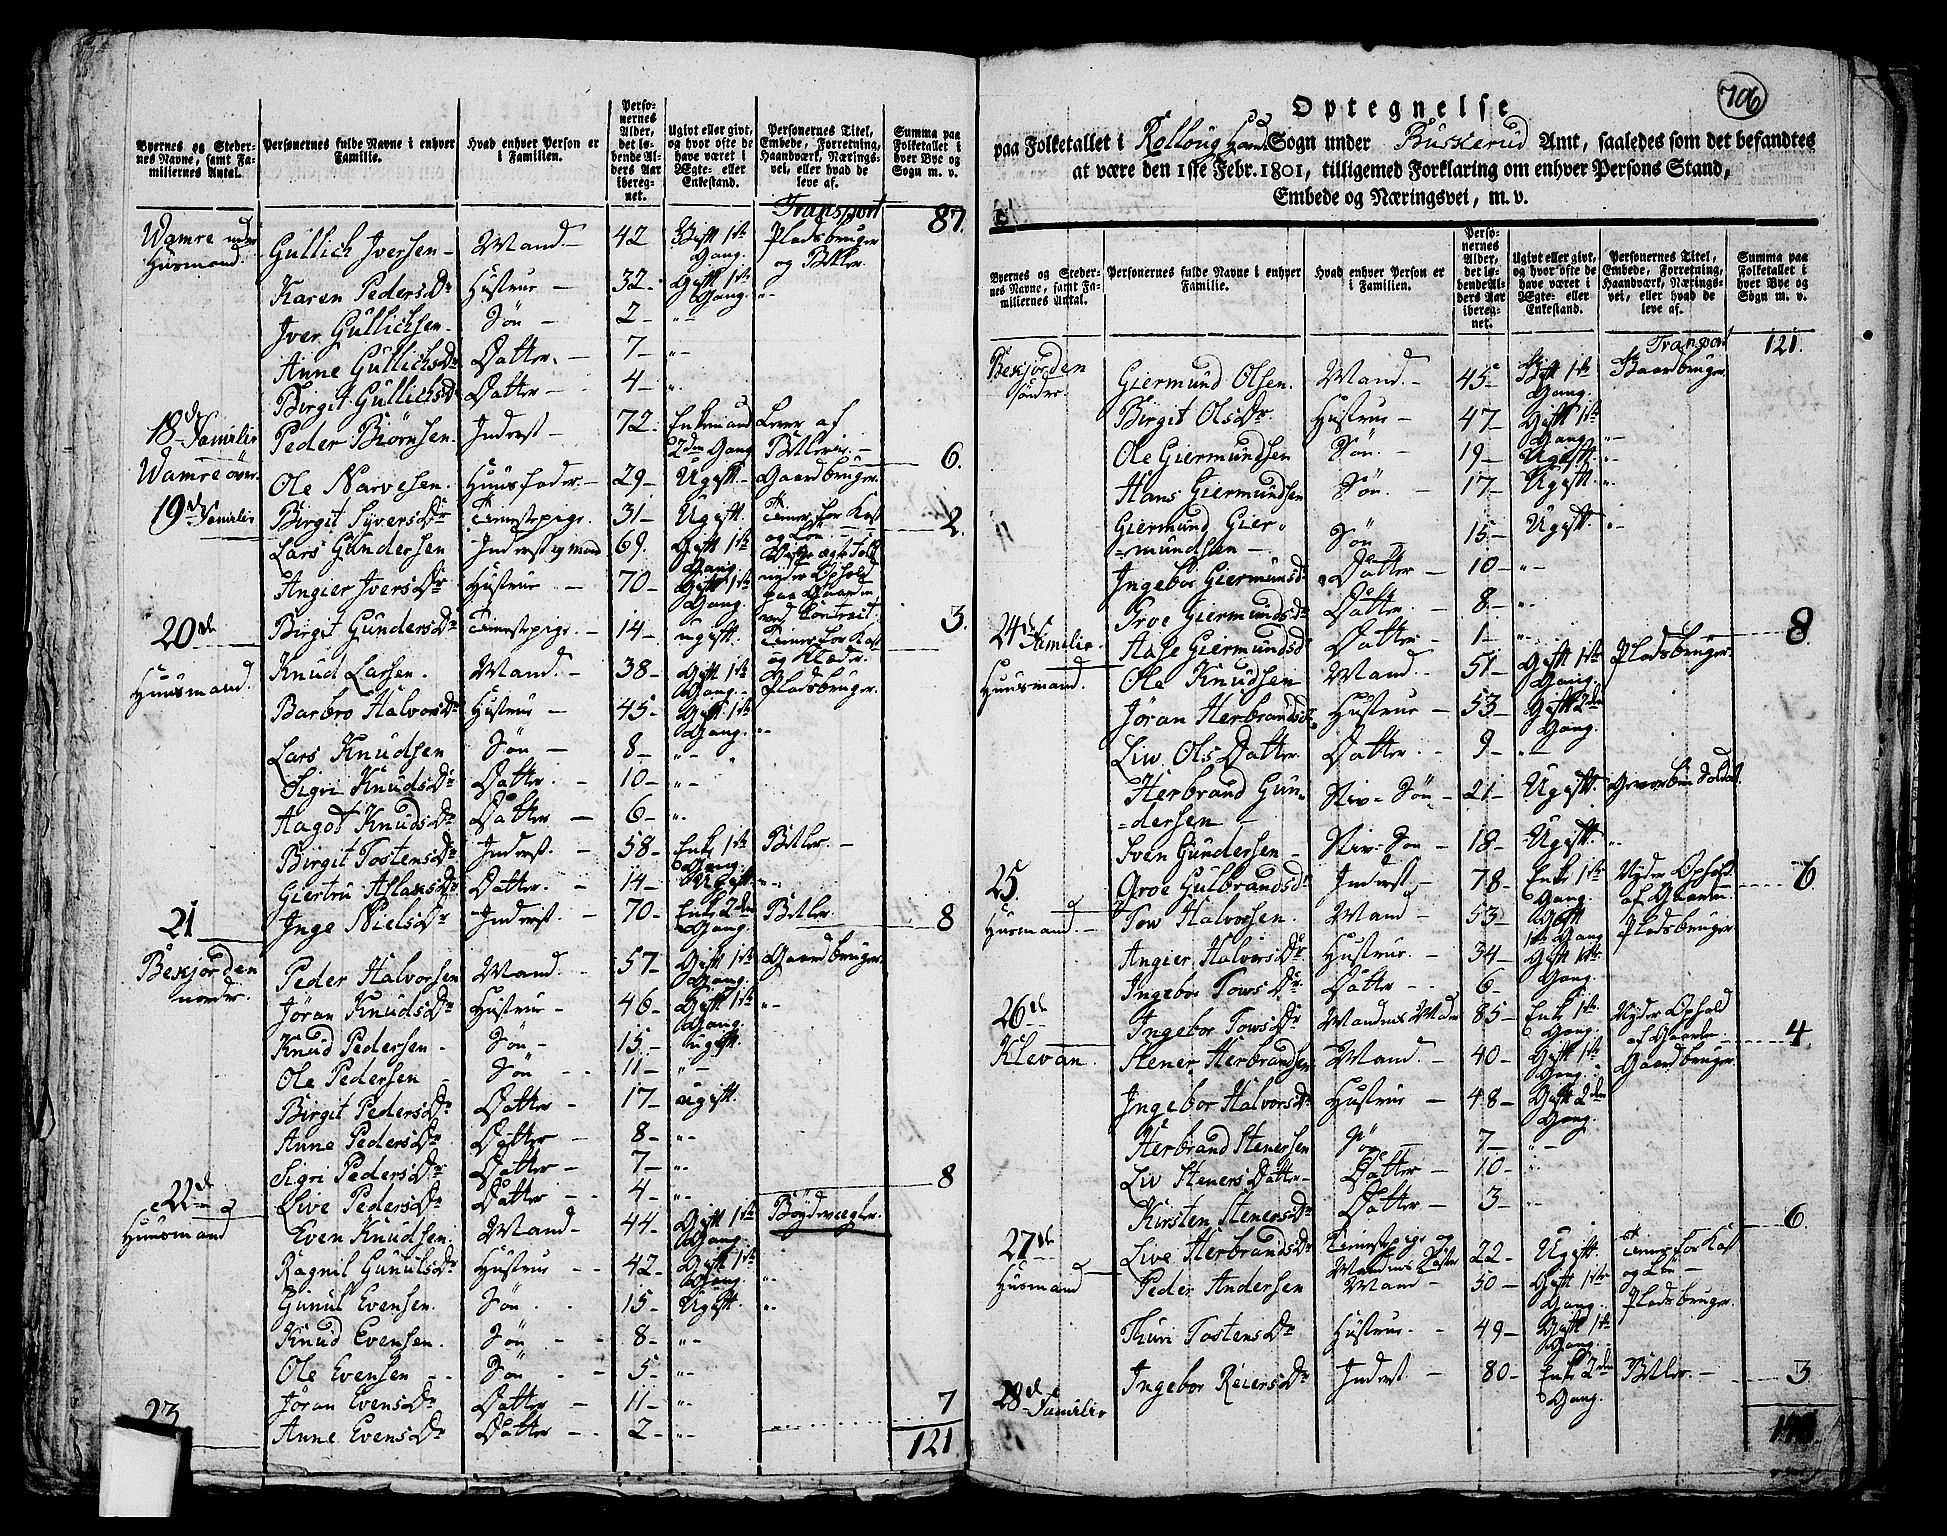 Byernes og Steder-
nes Navne, samt Fa-
miliernes Antal.
Personernes fulde Navne i enhver
Familie.
Hvad enhver Person er
i Familien.
Perso-
nernes
Alder,
det lø-
bende Al-
ders Aar
iberег-
net.
Ugivt eller givt,
og hvor ofte de
have været i
Ægte- eller
Enkestand.
Personernes Titel,
Embede, Forretning,
Haandværk, Nærings-
vei, eller hvad de
leve af.
Summa paa
Folketallet i
hver Bye og
Sogn m. v.
Transport 87.
Wamre nder Gullich Iversen - Mand - 42 Gift 1ste Pladsbruger
Husmand. Gang. og Betler.
Karen Peders Dr Hustrue - 32 - Gift 1ste
Gang
Iver Gullichsen - Søn - 2 - "
Anne Gullichs Dr Datter. - 7 - "
Birgit Gullichs Dr Datter - 4 - "
18de Familie Peder Biørnsen. Inderst - 72. Enkemand Lever af
2den Gang Betlerie. - 6.
Wamre över. Ole Narvesen. Huusfader. - 29 - Ugift - Gaardbruger.
19de Familie Birgit Syvers Dr Tienestepige. 31 - Ugift. Tiener for Kost
og Løn. 2.
Lars Gundersen Inderst og mand 69. Gift 1ste
Gang
Angier Ivers Dr Hustrue - 70 - Gift 1ste nyder Ophold
Gang. paa Gaarden
ved Contract
20de Birgit Gunders Dr Tienestepige. - 14 - ugift. Tiener for Kost 3.
og Klæder.
Huusmand. Knud Larsen. Mand. - 38 - Gift 1ste
Gang - Pladsbruger.
Barbro Halvors Dr Hustrue - 45 - Gift 1ste
Gang. "
Lars Knudsen Søn - 8 - "
Sigri Knuds Dr Datter. - 10 - "
Aagot Knuds Dr Datter - 6 - "
Birgit Tostens Dr Inderst. - 58 - Enke 1ste Betler. -
Gang.
Giertru Aslaks Dr Datter. - 14 - Ugift - "
21 Inge Niels Dr Inderst. - 70 - Enke 2den Betler 8
Gang.
Beskjorden Peder Halvorsen Mand. - 57 - Gift 1ste Gaardbruger.
nordre. Gang.
Jöran Knuds Dr Hustrue - 46 - Gift 1ste "
Gang.
Knud Pedersen - Søn - 15 - ugift.
Ole Pedersen - Søn - 11 - "
Birgit Peders Dr Datter - 17 - ugift.
Anne Peders Dr Datter - 8 - "
Sigri Peders Dr Datter - 7 - "
22de Live Peders Dr Datter - 4 - " 8
Huusmand Even Knudsen. Mand - 44 - Gift 1ste Bøydevægter.
Gang.
Ragnil Gunuls Dr Hustrue - 42 - Gift 1ste
Gang. "
Gunul Evensen. Søn - 15 - Ugift. "
Knud Evensen. Søn - 8 - "
Ole Evensen - Søn - 5 - "
Jöran Evens Dr Datter - 11 - " 7
23 Anne Evens Dr Datter - 2 - "
121.
706
Optegnelse
paa Folketallet i Rolloug Hoved Sogn under Buskerud Amt, saaledes som det befandtes
at være den 1ste Febr. 1801, tilligemed Forklaring om enhver Persons Stand,
Embede og Næringsvei, m. v.
Byernes og Steder-
nes Navne, samt Fa-
miliernes Antal.
Personernes fulde Navne i enhver
Familie.
Hvad enhver Person er
i Familien.
Perso-
nernes
Alder,
det lø-
bende Al-
ders Aar
ibereg-
net.
Ugivt eller givt,
og hvor ofte de
have været i
Ægte- eller
Enkestand.
Personernes Titel,
Embede, Forretning,
Haandværk, Nærings-
vei, eller hvad de
leve af.
Summa paa
Folketallet i
hver Bye og
Sogn m. v.
Transport 121.
Beskjorden Giermund Olsen. Mand. - 45 - Gift 1ste Gaardbruger.
søndre. Gang.
Birgit Ols Dr Hustrue - 47 - Gift 1ste
Gang "
Ole Giermundsen Søn. - 19 - Ugift. "
Hans Giermundsen Søn. - 17 - Ugift. "
Giermund Gier- Søn - 15 - Ugift. "
-mundsen -
Ingebor Giermunds Dr Datter - 10 - "
Groe Giermunds Dr Datter. - 8 - "
24de Familie. Aase Giermunds Dr Datter - 1 - " 8
Huusmand. Ole Knudsen Mand - 51 - Gift 1ste Pladsbruger.
Gang.
Jöran Herbrands Dr Hustrue - 53 - Gift 2den
Gang.
Liw Ols Datter Datter - 9 - "
Herbrand Gun- Stiv-Søn - 21 - Ugift. Geworben Soldat.
-dersen -
Sven Gundersen - Stiv-Søn - 18 - Ugift. "
25. Groe Gulbrands Dr Inderst - 78 - Enke 1ste Nyder Ophold 6
Gang. af Gaarden
Husmand. Tow Halvorsen. Mand - 53 - Gift Pladsbruger.
1ste Gang
Angier Halvors Dr Hustrue. - 34 - Gift 1ste
Gang.
Ingebor Tows Dr Datter - 6 -
26de Ingebor Tows Dr Mandens Moder 85 - Enke 1ste Nyder Ophold
Gang. af Gaarden 4
Klevan. Stener Herbrandsen Mand. - 40 - Gift 1ste Gaardbruger.
Gang.
Ingebor Halvors Dr Hustrue - 48 - Gift 2den
Gang.
Herbrand Stenersen Søn - 7 - "
Liv Steners Datter - Datter - 10 - "
Kirsten Steners Dr Datter - 3 - "
27de Live Herbrands Dr Tienestepige og 22 - Ugift. Tiener for Kost 6.
Mandens Søster og Løn -
Husmand Peder Andersen Mand - 50 - Gift 1ste Pladsbruger.
Gang.
Thuri Tostens Dr Hustrue. - 49 - Gift 1ste
Gang.
28de Familie Ingebor Reiers Dr Inderst - 80 - Enke 2den Betler. - 3
Gang.
148.